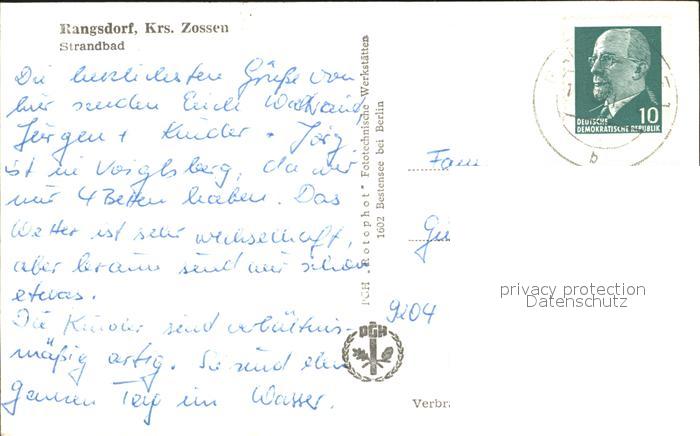 Rangsdorf, Krs. Zossen
Strandbad
Die herzlichsten Grüße von
hier senden Euch Waltraud,
Jürgen + Kinder. Jörg
ist in Voigtsberg, da wir
nur 4 Betten haben. Das
Wetter ist sehr wechselhaft,
aber braun sind wir schon
etwas.
Die Kinder sind verhältnis-
mäßig artig. Sie sind den
ganzen Tag im Wasser.
PGH „Rotophot" Fototechnische Werkstätten
1602 Bestensee bei Berlin
PGH
10
DEUTSCHE
DEMOKRATISCHE REPUBLIK
b
Fam
9104
privacy protection
Datenschutz
Verbr.